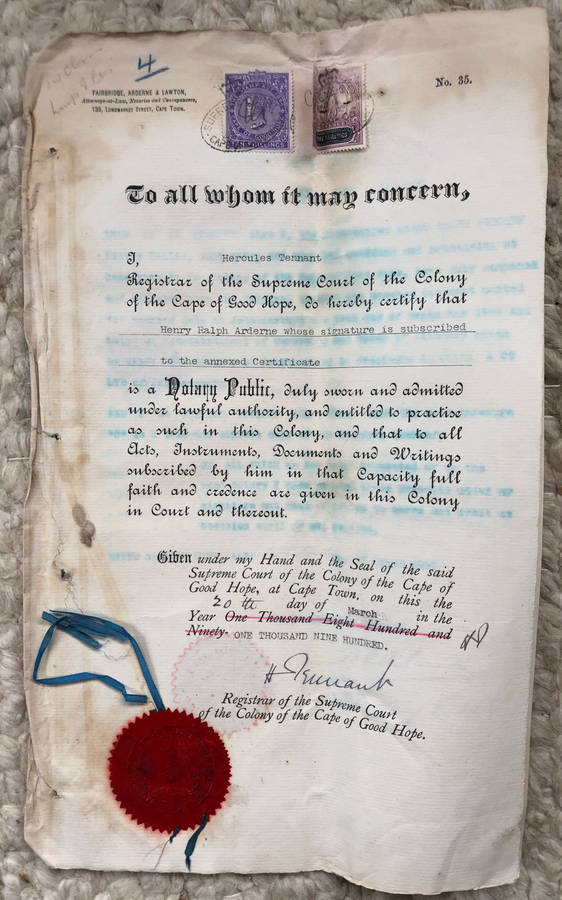 4
No. 35.
FAIRBRIDGE, ARDERNE & LAWTON,
Attorneys-at-Law, Notaries and Conveyancers,
LONGMARKET STREET, CAPE TOWN.
To all whom it may concern,
I, Hercules Tennant
Registrar of the Supreme Court of the Colony
of the Cape of Good Hope, do hereby certify that
Henry Ralph Arderne whose signature is subscribed
to the annexed Certificate
is a Notary Public, duly sworn and admitted
under lawful authority, and entitled to practise
as such in this Colony, and that to all
Acts, Instruments, Documents and Writings
subscribed by him in that Capacity full
faith and credence are given in this Colony
in Court and thereout.
Given under my Hand and the Seal of the said
Supreme Court of the Colony of the Cape of
Good Hope, at Cape Town, on this the
20th day of March in the
Year One Thousand Eight Hundred and
Ninety- ONE THOUSAND NINE HUNDRED.
H Tennant
Registrar of the Supreme Court
of the Colony of the Cape of Good Hope.